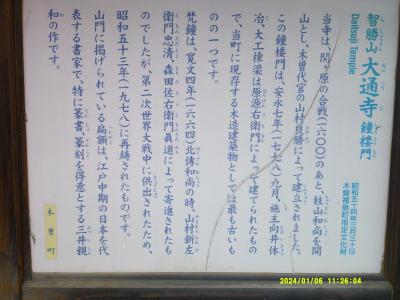 智勝山 大通寺 鐘楼門
Daitsuji Temple
昭和五十四年三月三十日
木曽福島町指定文化財
当寺は、関ヶ原の合戦(一六〇〇)のあと、桂山和尚を開
山とし、木曽代官の山村良勝によって建立されました。
この鐘楼門は、安永七年(一七七八)九月、施主向井休
冶、大工棟梁は原源右衛門によって建てられたもの
で、当町に現存する木造建築物としては最も古いも
のの一つです。
梵鐘は、寛文四年(一六六四)北傳和尚の時、山村新左
衛門忠清、森田佐右衛門義道によって寄進されたも
のでしたが、第二次世界大戦中に供出されたため、
昭和五十三年(一九七八)に再鋳されたものです。
山門に掲げられている扁額は、江戸中期の日本を代
表する書家で、特に篆書、篆刻を得意とする三井親
和の作です。
木曽町
2024/01/06 11:26:04